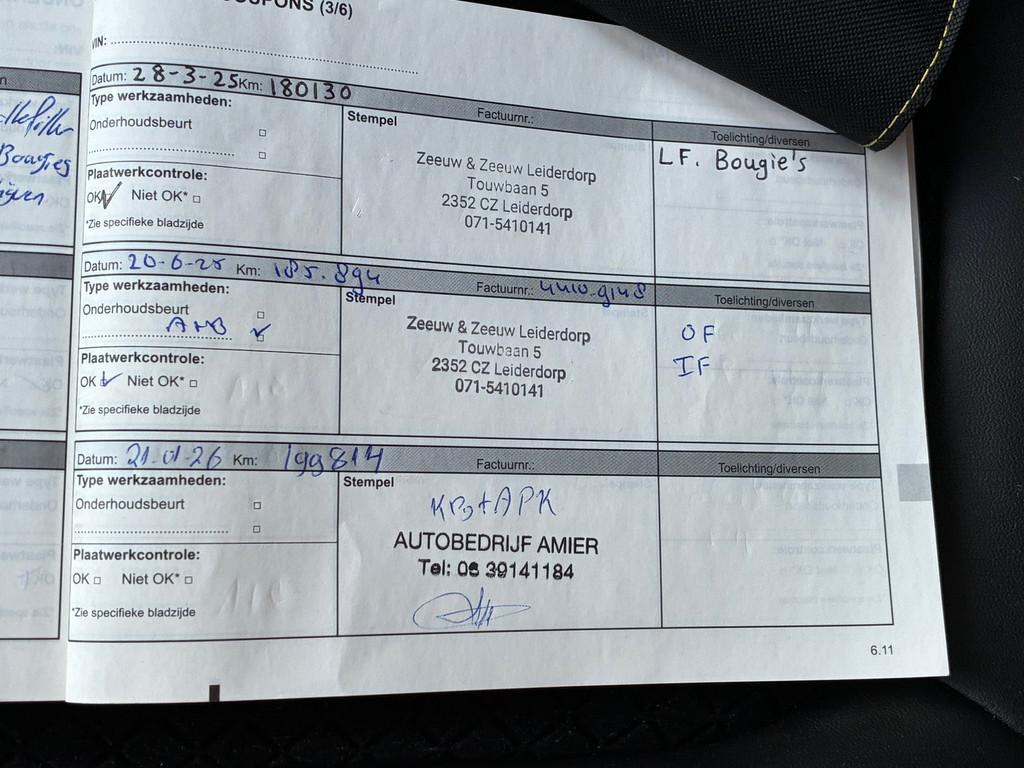 COUPONS (3/6)
VIN:
Datum: 28-3-25 Km: 180130
Type werkzaamheden:
Onderhoudsbeurt
Plaatwerkcontrole:
OK Niet OK*
*Zie specifieke bladzijde
Factuurnr.:
Stempel
Zeeuw & Zeeuw Leiderdorp
Touwbaan 5
2352 CZ Leiderdorp
071-5410141
Toelichting/diversen
LF. Bougie's
Bougies
Datum: 20-6-25 Km: 185.894
Type werkzaamheden:
Onderhoudsbeurt
AMB
Plaatwerkcontrole:
OK Niet OK*
*Zie specifieke bladzijde
Factuurnr.:
Stempel
Zeeuw & Zeeuw Leiderdorp
Touwbaan 5
2352 CZ Leiderdorp
071-5410141
Toelichting/diversen
OF
IF
Datum: 21-01-26 Km: 199814
Type werkzaamheden:
Onderhoudsbeurt
Plaatwerkcontrole:
OK Niet OK*
*Zie specifieke bladzijde
Factuurnr.:
Stempel
AUTOBEDRIJF AMIER
Tel: 06 39141184
Toelichting/diversen
6.11